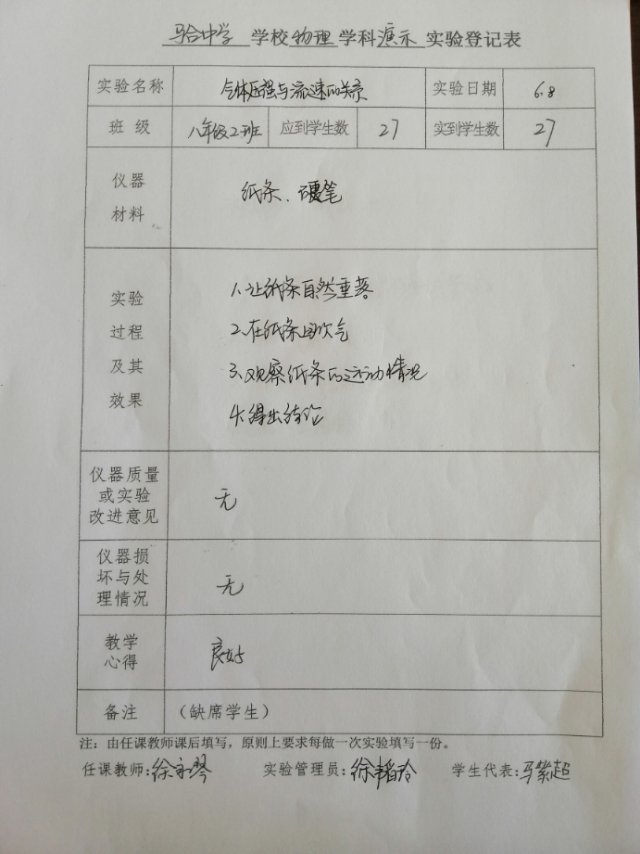 马合中学 学校物理学科演示实验登记表
实验名称 气体压强与流速的关系 实验日期 6.8
班级 八年级2班 应到学生数 27 实到学生数 27
仪器
材料
纸条、硬笔
实验
过程
及其
效果
1.让纸条自然垂落
2.在纸条间吹气
3.观察纸条的运动情况
4.得出结论
仪器质量
或实验
改进意见
无
仪器损
坏与处
理情况
无
教学
心得
良好
备注 （缺席学生）
注：由任课教师课后填写，原则上要求每做一次实验填写一份。
任课教师：徐 琴 实验管理员：徐 玲 学生代表：马紫超